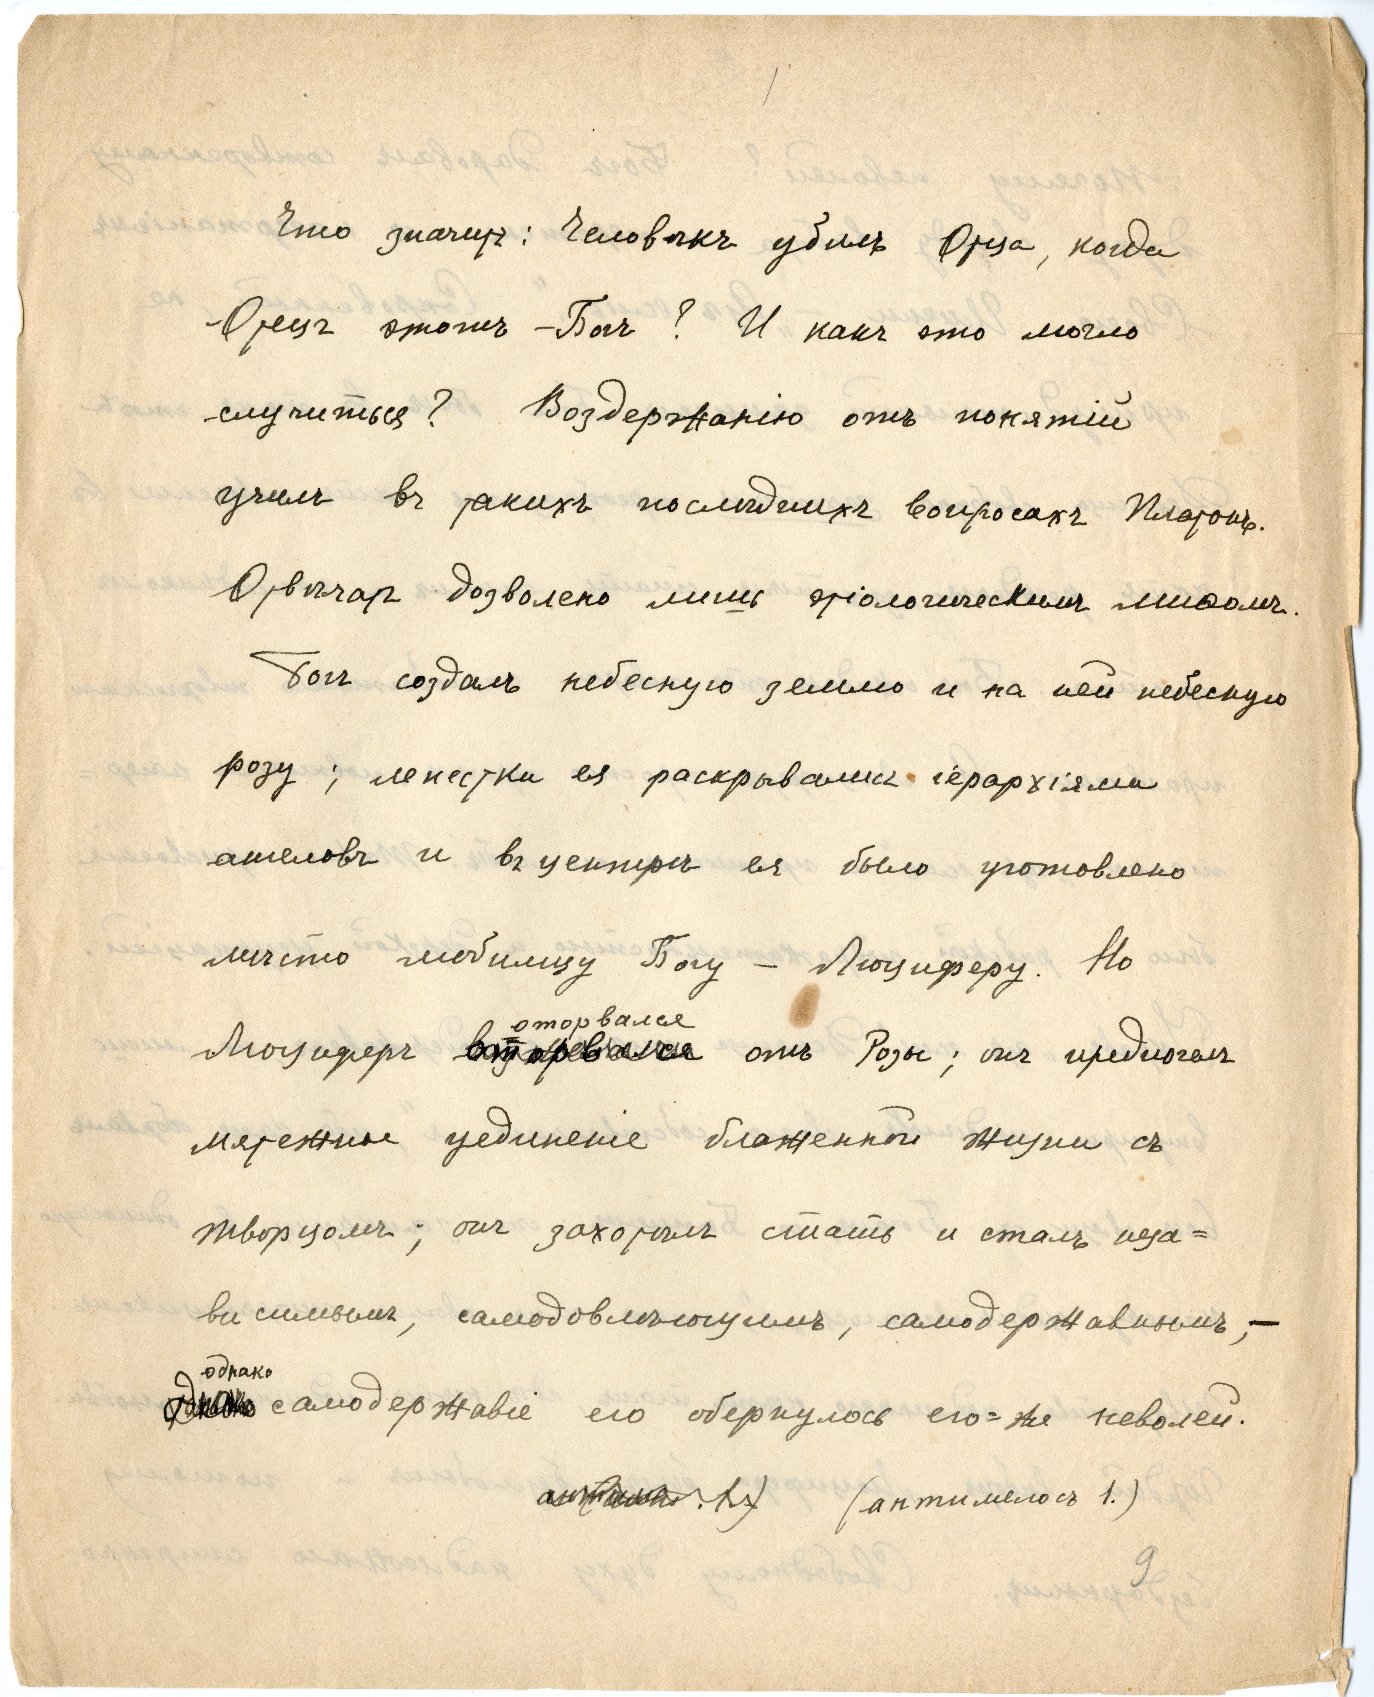 Что значитъ: Человѣкъ убилъ Отца, когда
Отецъ этотъ – Богъ? И какъ это могло
случиться? Воздержанію отъ понятій
училъ въ такихъ послѣднихъ вопросахъ Платонъ.
Отвѣчать дозволено лишь этіологическимъ миѳомъ.
Богъ создалъ небесную землю и на ней небесную
розу; лепестки ея раскрывались іерархіями
ангеловъ и въ центрѣ ея было уготовлено
мѣсто любимцу Богу – Люциферу. Но
оторвался
Люциферъ отъ Розы; онъ предпочелъ
мятежное уединеніе блаженной жизни съ
творцомъ; онъ захотѣлъ стать и сталъ неза=
висимымъ, самодовлѣющимъ, самодержавнымъ, –
однако
самодержавіе его обернулось его=же неволей.
(антимелосъ 1.)
9